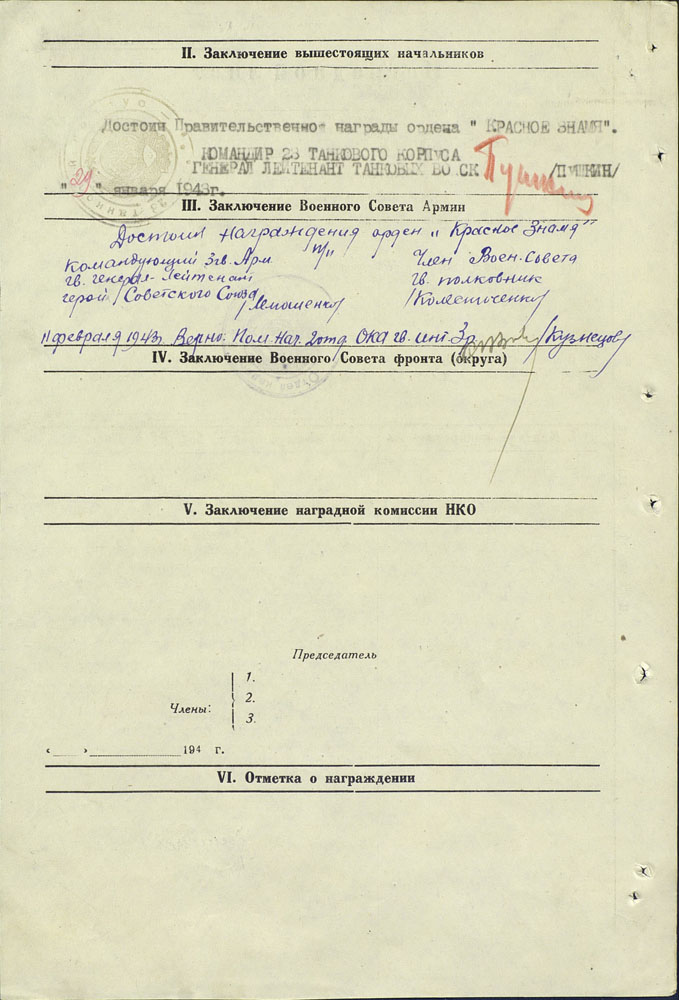 II. Заключение вышестоящих начальников
Достоин Правительственной награды ордена " КРАСНОЕ ЗНАМЯ".
КОМАНДИР 23 ТАНКОВОГО КОРПУСА
ГЕНЕРАЛ ЛЕЙТЕНАНТ ТАНКОВЫХ ВОЙСК Пушкин /ПУШКИН/
"29" января 1943г.
III. Заключение Военного Совета Армии
Достоин награждения орден „Красное Знамя"
п/п
Командующий 3 гв. Арм. Член Воен-Совета
гв. генерал-лейтенант гв. полковник
герой Советского Союза /Лелюшенко/
11 февраля 1943г. Верно: Пом. Нач. 2 отд. ОКа гв. инт. 3р. /Кузнецов/
IV. Заключение Военного Совета фронта (округа)
V. Заключение наградной комиссии НКО
Председатель
1.
Члены: 2.
3.
« » 194 г.
VI. Отметка о награждении